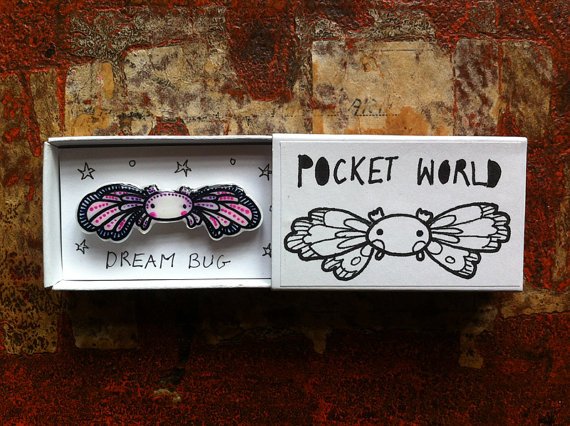 POCKET WORLD
DREAM BUG